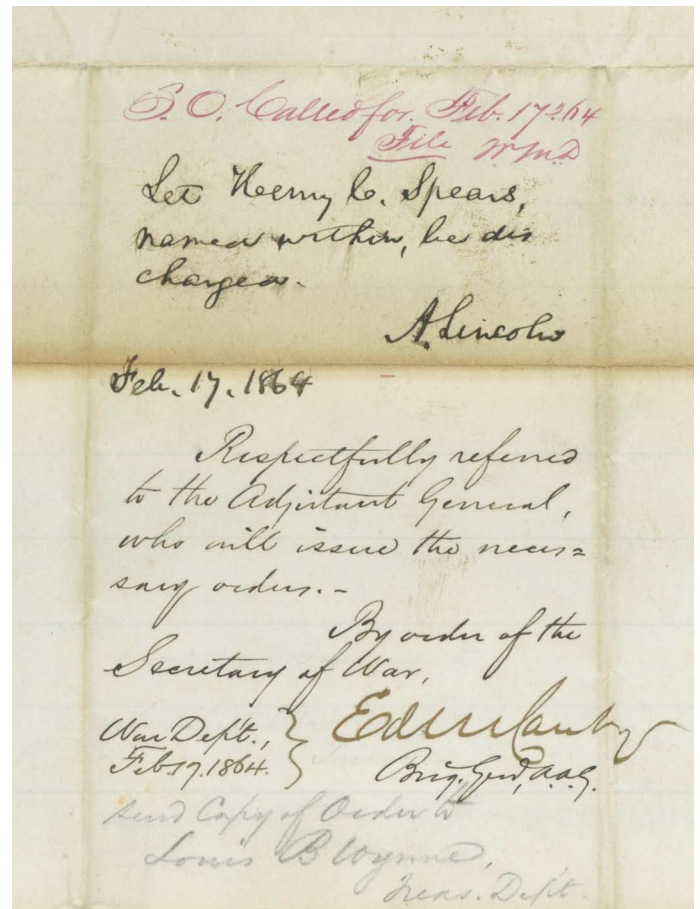 S. O. Called for. Feb. 17" 64
File W.M.D
Let Henry C. Spears,
named within, be dis
charged.
A. Lincoln
Feb. 17, 1864
Respectfully referred
to the Adjutant General,
who will issue the neces=
sary orders.-
By order of the
Secretary of War,
War Dep't.,
Feb. 17. 1864.
Ed R S Canby
Brig. Gen'l, A.A.G.
Send Copy of Order to
Louis B Wynne,
Treas. Dep't.